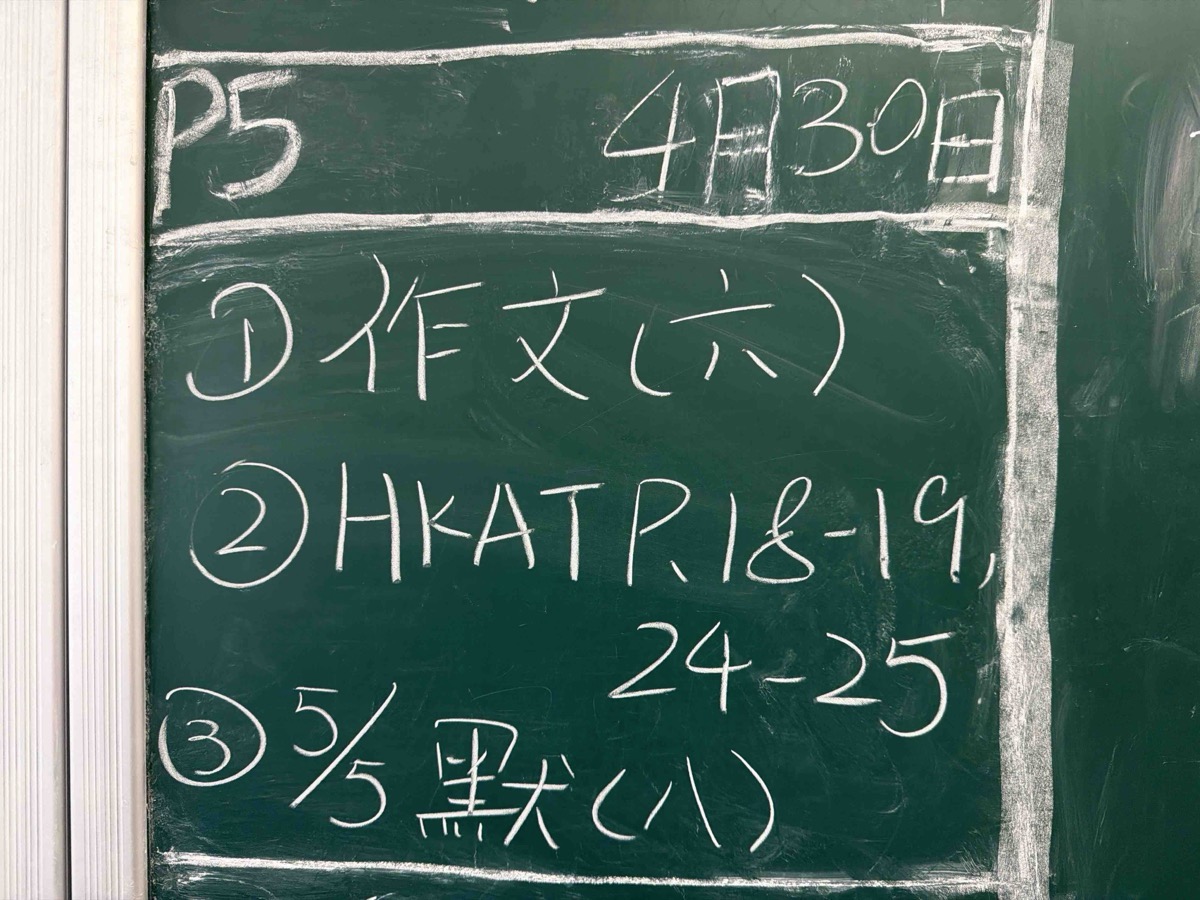 P5 4月30日
① 作文(六)
② HKAT P.18-19,
24-25
③ 5/5 默(八)